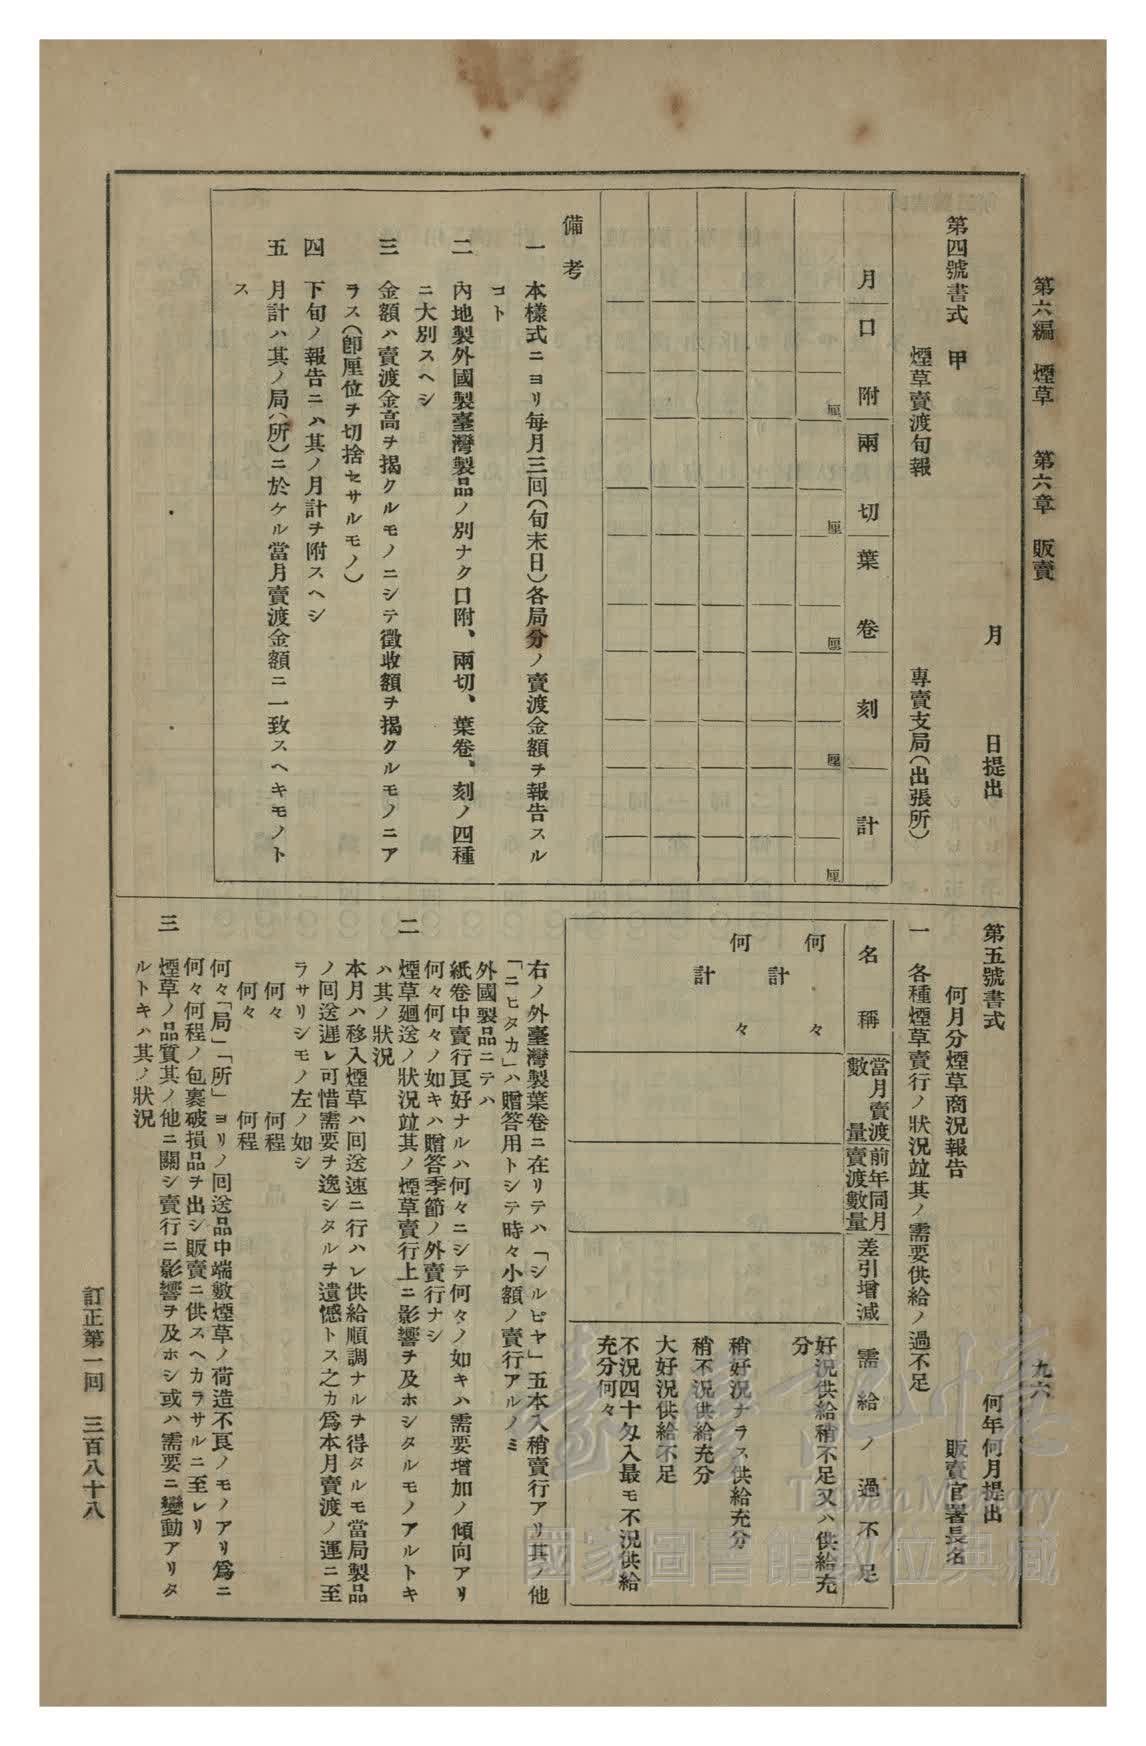 第六編 煙草 第六章 販賣
九六
月 日提出
第四號書式 甲
煙草賣渡旬報
專賣支局(出張所)
月
口附
兩切
葉卷
刻
計
厘
厘
厘
厘
厘
備考
一 本樣式ニヨリ每月三回(旬末日)各局分ノ賣渡金額ヲ報告スル
コト
二 內地製外國製臺灣製品ノ別ナク口附、兩切、葉卷、刻ノ四種
ニ大別スヘシ
三 金額ハ賣渡金高ヲ揭クルモノニシテ徵收額ヲ揭クルモノニア
ラス(卽厘位ヲ切捨セサルモノ)
四 下旬ノ報告ニハ其ノ月計ヲ附スヘシ
五 月計ハ其ノ局(所)ニ於ケル當月賣渡金額ニ一致スヘキモノト
ス
第五號書式
何年何月提出
何月分煙草商況報告
販賣官署長名
一 各種煙草賣行ノ狀況竝其ノ需要供給ノ過不足
名稱
當月賣渡數量
前年同月賣渡數量
差引增減
需給ノ過不足
何々
計
何々
計
好況供給稍不足又ハ供給充
分
稍好況ナラス供給充分
稍不況供給充分
大好況供給不足
不況四十匁入最モ不況供給
充分何々
右ノ外臺灣製葉卷ニ在リテハ「シルビヤ」五本入稍賣行アリ其ノ他
「ニヒタカ」ハ贈答用トシテ時々小額ノ賣行アルノミ
外國製品ニテハ
紙卷中賣行良好ナルハ何々ニシテ何々ノ如キハ需要增加ノ傾向アリ
何々何々ノ如キハ贈答季節ノ外賣行ナシ
二 煙草廻送ノ狀況竝其ノ煙草賣行上ニ影響ヲ及ホシタルモノアルトキ
ハ其ノ狀況
本月ハ移入煙草ハ回送速ニ行ハレ供給順調ナルヲ得タルモ當局製品
ノ回送遲レ可惜需要ヲ逸シタルヲ遺憾トス之カ爲本月賣渡ノ運ニ至
ラサリシモノ左ノ如シ
何々 何程
何々 何程
何々「局」「所」ヨリノ回送品中端數煙草ノ荷造不良ノモノアリ爲ニ
何々何程ノ包裹破損品ヲ出シ販賣ニ供スヘカラサルニ至レリ
三 煙草ノ品質其ノ他ニ關シ賣行ニ影響ヲ及ホシ或ハ需要ニ變動アリタ
ルトキハ其ノ狀況
訂正第一回 三百八十八
臺灣記憶
Taiwan Memory
國家圖書館數位典藏